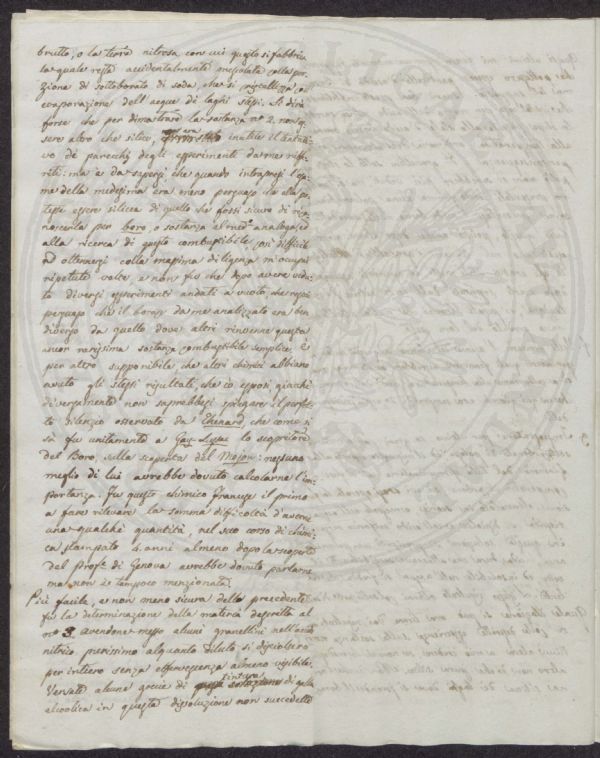 brutto, o la terra nitrosa con cui questo si fabbrica
la quale resta accidentalmente mescolata colla por-
zione di sottoborato di soda, che si cristallizza coll'
evaporazione dell'acque di laghi stessi. Si dirà
forse che per dimostrare la sostanza nº 2. non es-
sere altro che silice, era inutile il tentati-
vo di parecchj degli esperimenti da me riffe-
riti: ma è da sapersi che quando intrapresi l'esa-
me della medesima era meno persuaso che ella po-
tesse essere silicea di quello che fossi sicuro di rico-
noscerla per boro, o sostanza al medº analoga; ed
alla ricerca di questo combustibile così difficile
ad ottenersi colla massima diligenza m'occupai
ripetute volte e non fu che dopo avere vedu-
to diversi esperimenti andati a vuoto, che restai
persuaso che il borace da me analizzato era ben
diverso da quello dove altri rinvenne questa
ancor rarissima sostanza combustibile semplice. È
per altro supponibile, che altri chimici abbiano
avuto gli stessi risultati, che io esposi, giacchè
diversamente non saprebbesi spiegare il perfet-
to silenzio osservato da Thenard, che come si
sà fu unitamente a Gay-Lussac lo scopritore
del Boro, sulla scoperta del Mojon: nessuno
meglio di lui avrebbe dovuto calcolarne l'im-
portanza. Fu questo chimico Francese il primo
a fare rilevare la somma difficoltà d'averne
una qualche quantità, nel suo corso di chimi-
ca stampato 4 anni almeno dopo la scoperta
del Profe. di Genova avrebbe dovuto parlarne
ma non è tampoco menzionata.
Più facile, e non meno sicura della precedente
fu la determinazione della materia descritta al
nº 3. avendone messo alcuni granellini nell'acido
nitrico purissimo alquanto diluto si disciolsero
per intiero senza effervescenza almeno visibile.
Versate alcune goccie di tintura di galla
alcoolica in questa dissoluzione non succedette